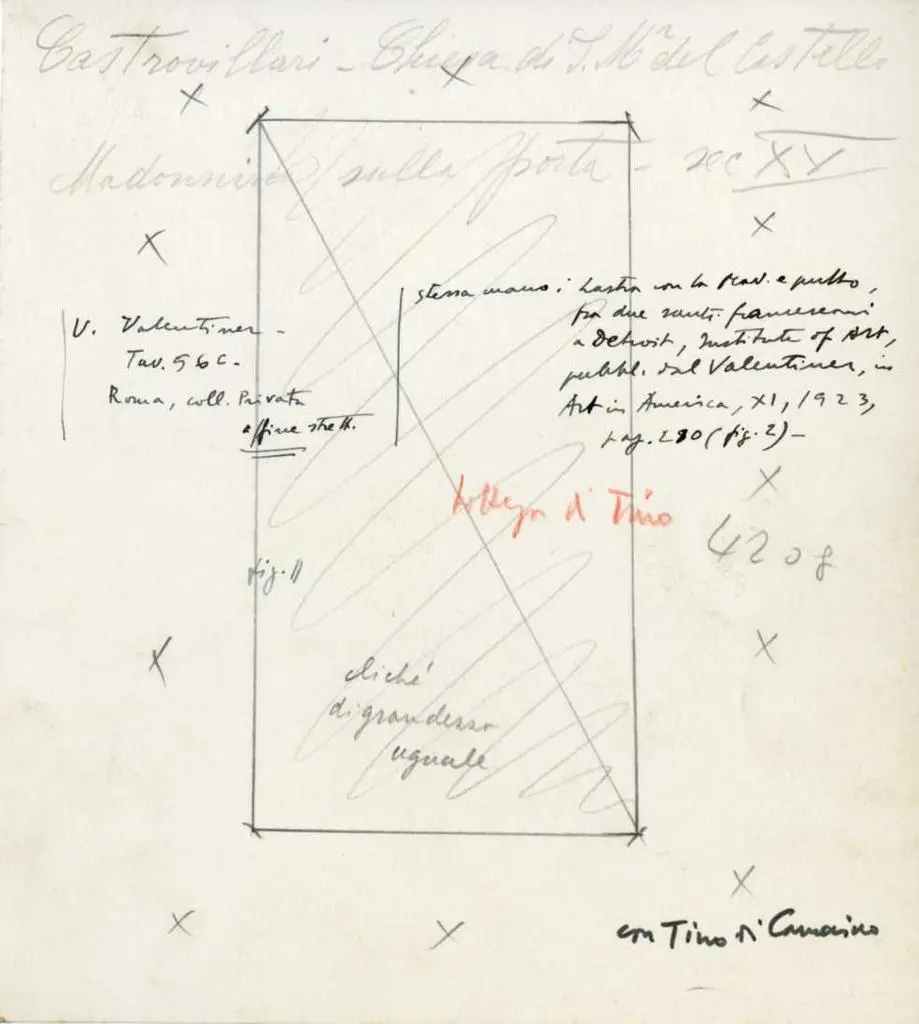 Castrovillari - Chiesa di S. Mª del Castello
Madonnina sulla porta - sec XV
V. Valentiner -
Tav. 56 c.
Roma, coll. Privata
affine strett.
stessa mano: Lastra con la Mad. e putto,
fra due santi francescani
a Detroit, Institute of Art,
pubbl. dal Valentiner, in
Art in America, XI, 1923,
pag. 280 (fig. 2) -
bottega di Tino
4208
fig. 11
cliché
di grandezza
uguale
con Tino di Camaino